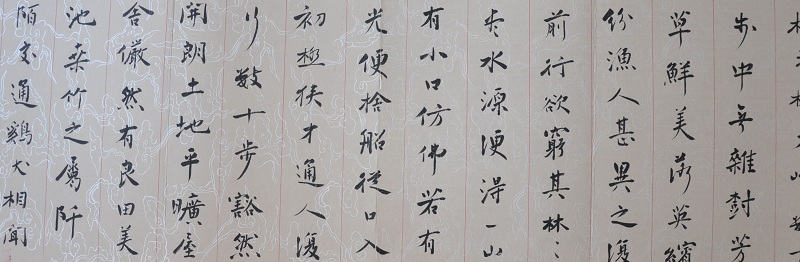 步中無雜樹芳
草鮮美落英繽
紛漁人甚異之復
前行欲窮其林〻
盡水源便得一山
有小口仿佛若有
光便捨船從口入
初極狹才通人復
行數十步豁然
開朗土地平曠屋
舍儼然有良田美
池桑竹之屬阡
陌交通鷄犬相聞